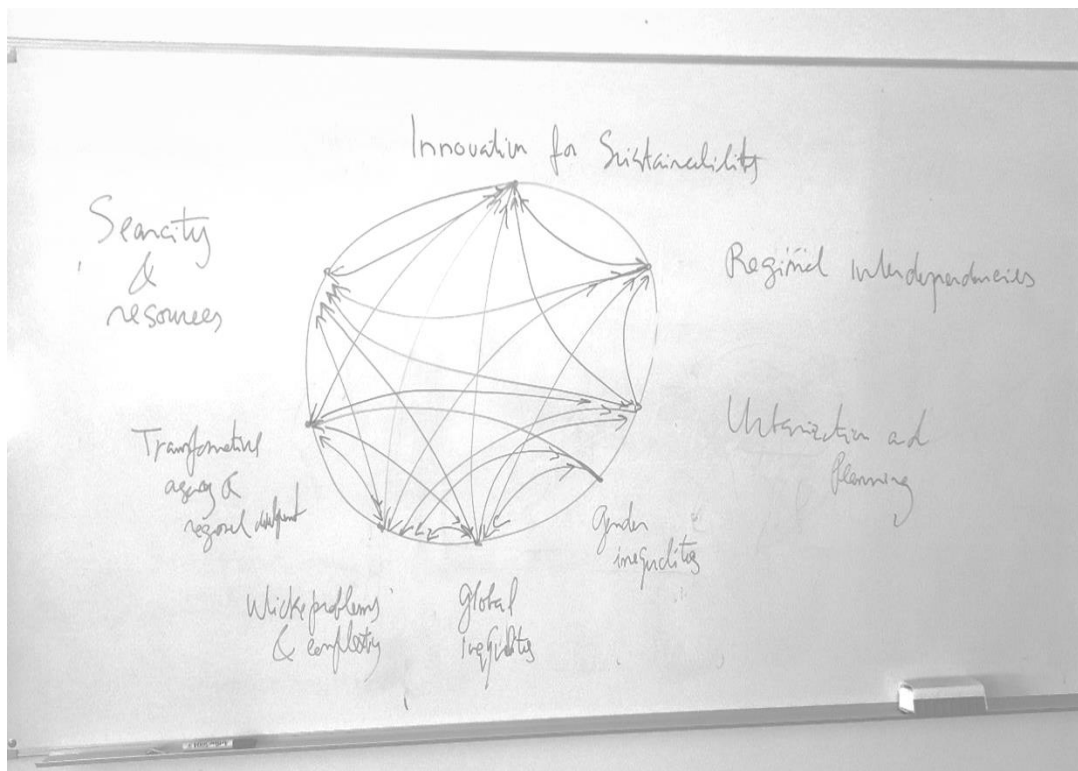 Innovation for Sustainability
Scarcity
&
resources
Regional interdependencies
Urbanization and
Planning
Transformative
agency &
regional
Gender
inequalities
Wicke problems
& complexity
Global
inequalities